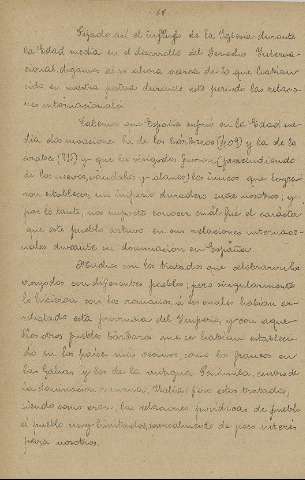 68
Fijado así el influjo de la Iglesia durante
la Edad media en el desarrollo del Derecho Interna-
cional, digamos ahora acerca de lo que habian
sido en nuestra patria durante este periodo las relacio-
nes internacionales.
Sabemos que España sufrió en la Edad me-
dia dos invasiones: la de los bárbaros (409) y la de los
árabes (711) y que los visigodos fueron (prescindiendo
de los suevos, vándalos y alanos) los únicos que logra-
ron establecer un imperio duradero entre nosotros; y
por lo tanto nos importa conocer cuál fué el carácter
que este pueblo sostuvo en sus relaciones internacio-
nales durante su dominación en España.
Muchos son los tratados que celebraron los
visigodos con diferentes pueblos; pero singularmente
lo hicieron con los romanos, á los cuales habian
esta provincia del Imperio, y con aque-
llos otros pueblos bárbaros que se habian estableci-
do en los paises más cercanos como los francos en
las Galias y los de la antigua Península, centro de
la dominación romana, Italia; pero estos tratados,
siendo como eran, las relaciones jurídicas de pueblo
á pueblo muy limitadas, son realmente de poco interés
para nosotros.